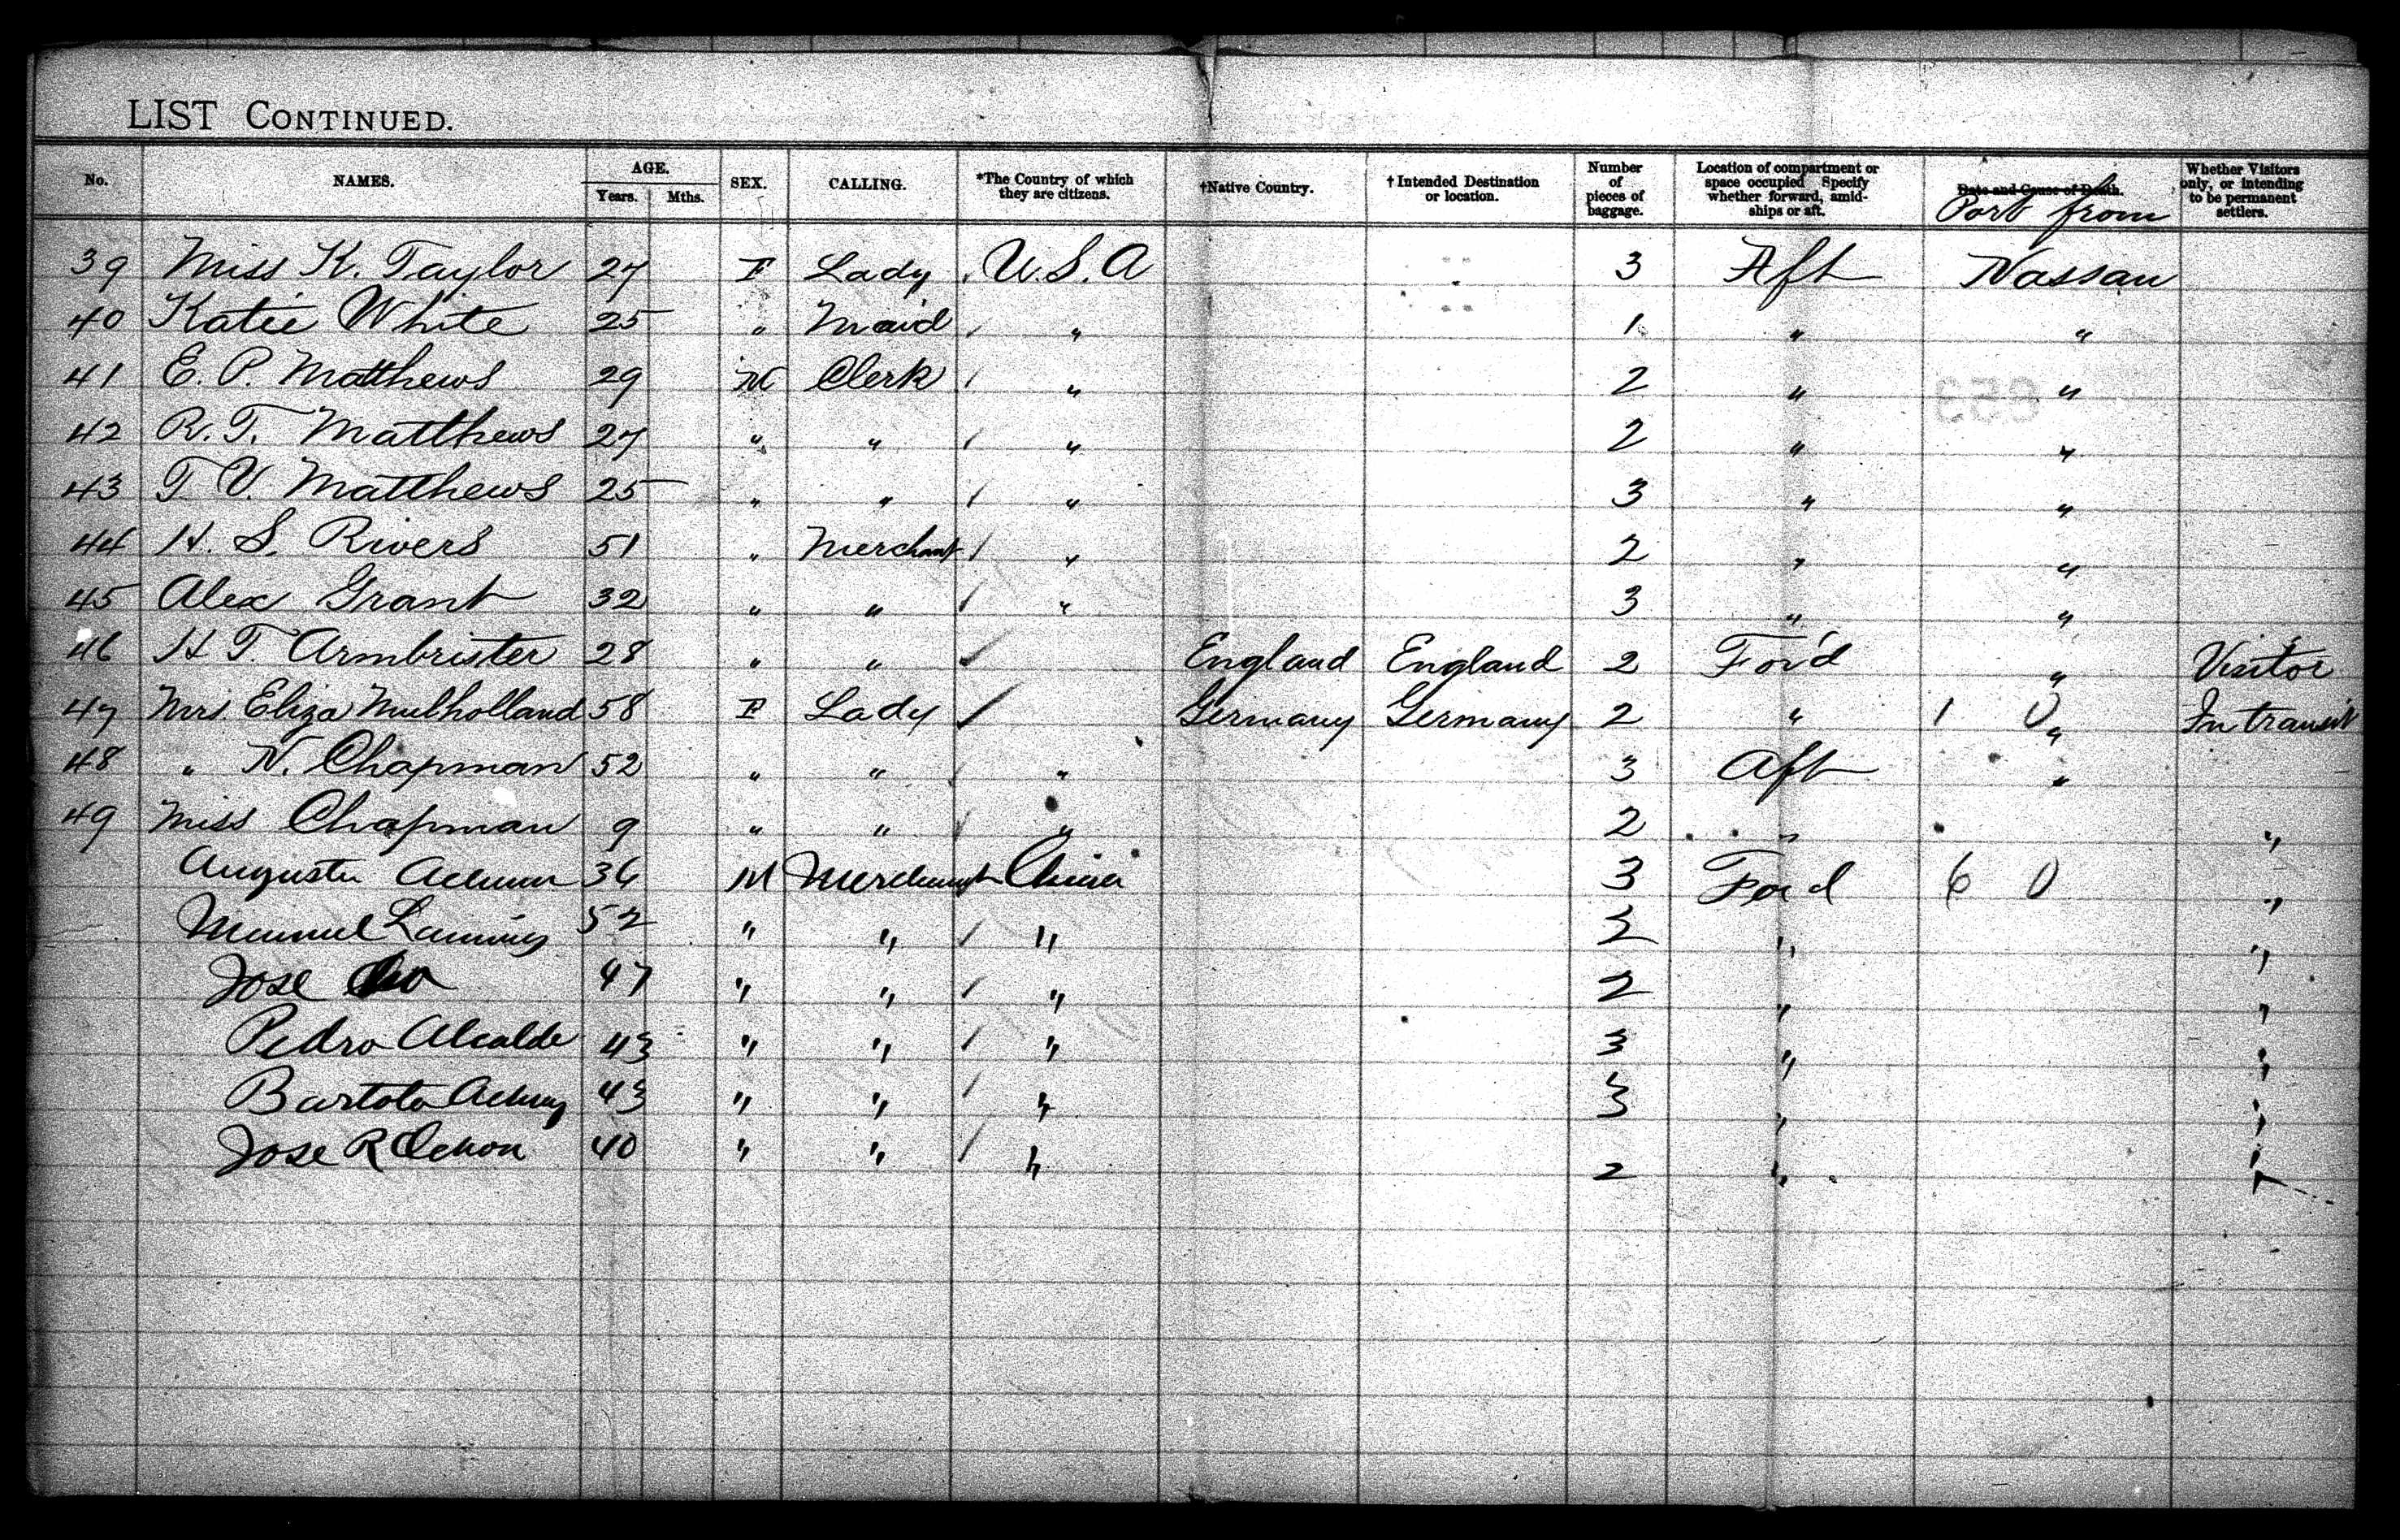 LIST CONTINUED.
No. NAMES. AGE. Years. Mths. SEX. CALLING. *The Country of which they are citizens. †Native Country. †Intended Destination or location. Number of pieces of baggage. Location of compartment or space occupied Specify whether forward, amidships or aft. Date and Cause of Death. Port from Whether Visitors only, or intending to be permanent settlers.
39 Miss K. Taylor 27 F Lady U.S.A 3 Aft Nassau
40 Katie White 25 " Maid " 1 " "
41 E. P. Matthews 29 M Clerk " 2 " "
42 R. T. Matthews 27 " " " 2 " "
43 T V. Matthews 25 " " " 3 " "
44 H. S. Rivers 51 " Merchant " 2 " "
45 Alex Grant 32 " " " 3 " "
46 H T. Armbrister 28 " " England England 2 For'd " Visitor
47 Mrs Eliza Mulholland 58 F Lady Germany Germany 2 " 1 0 " In transit
48 " N. Chapman 52 " " " 3 Aft "
49 Miss Chapman 9 " " " 2 " "
36 M Merchant China 3 For d 6 0 "
Manuel 52 " " " " "
Jose 47 " " " 2 " "
Pedro Alcalde 43 " " " 3 " "
Bartolo 43 " " " 3 " "
Jose R 40 " " " 2 " "